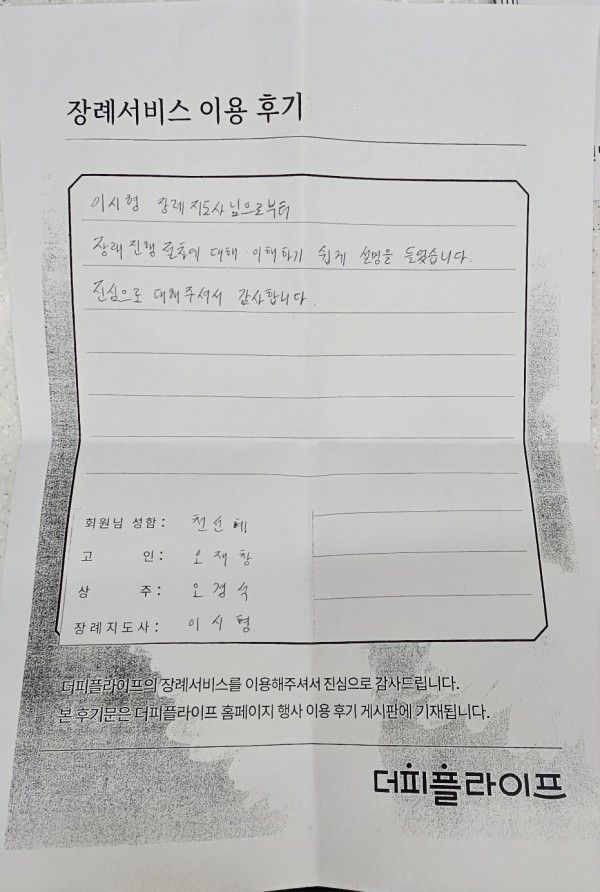 장례서비스 이용 후기
이시형 장례지도사님으로부터
장례 진행 절차에 대해 이해하기 쉽게 설명을 들었습니다.
진심으로 대해주셔서 감사합니다.
회원님 성함 : 천선혜
고 인 : 오재창
상 주 : 오경숙
장례지도사 : 이시형
더피플라이프의 장례서비스를 이용해주셔서 진심으로 감사드립니다.
본 후기문은 더피플라이프 홈페이지 행사 이용 후기 게시판에 기재됩니다.
더피플라이프